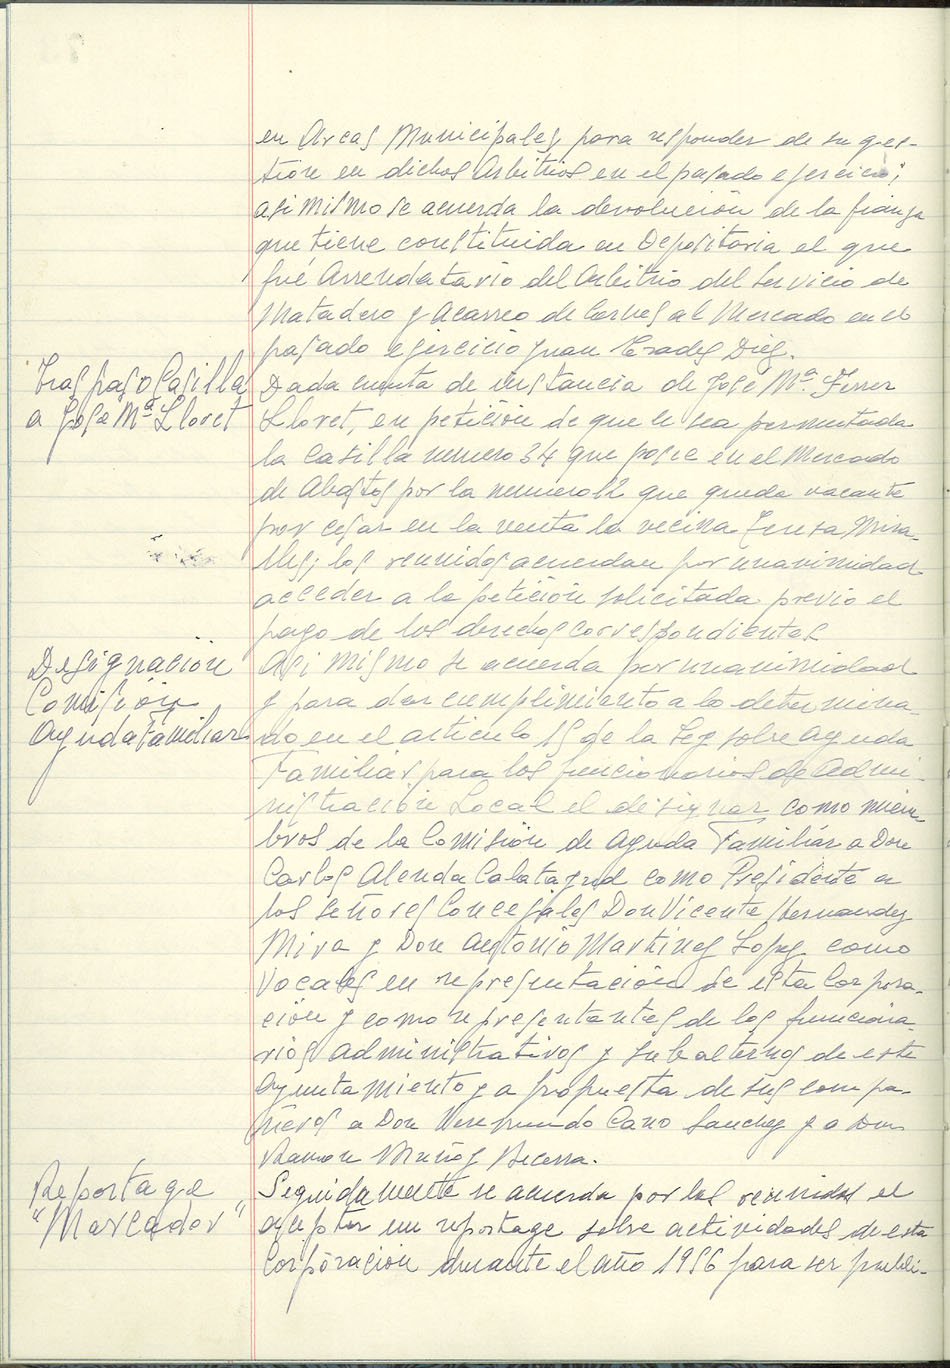 en Arcas Municipales, para responder de su ges-
tión en dichos Arbitrios en el pasado ejercicio;
asi mismo se acuerda la devolución de la fianza
que tiene constituida en Depositaria el que
fué Arrendatario del Arbitrio del Servicio de
Matadero y Acarreo de Carnes al Mercado en el
pasado ejercicio Juan Prades Diez.
Traspaso Casilla
a Jose Mª Lloret
Dada cuenta de instancia de Jose Mª. Ferrer
Lloret, en petición de que le sea permutada
la Casilla numero 34 que posee en el Mercado
de Abastos por la numero 12 que queda vacante
por cesar en la venta la vecina Teresa Mira-
lles; los reunidos acuerdan por unanimidad
acceder a la petición solicitada previo el
pago de los derechos correspondientes
Designación
Comisión
Ayuda Familiar
Asi mismo se acuerda por unanimidad
y para dar cumplimiento a lo determina-
do en el articulo 15 de la Ley sobre Ayuda
Familiar para los funcionarios de Admi-
nistración Local el designar como miem-
bros de la Comisión de Ayuda Familiar a Don
Carlos Alenda Calatayud como Presidente a
los Señores Concejales Don Vicente Hernandez
Mira y Don Antonio Martinez Lopez como
Vocales en representación de esta Corpora-
ción y como representantes de los funciona-
rios administrativos y subalternos de este
Ayuntamiento y a propuesta de sus compa-
ñeros a Don Cano Sanchez y a Don
Ramon Muñoz Becerra.
Reportage
"Marcador"
Seguidamente se acuerda por los reunidos el
aceptar un reportage sobre actividades de esta
Corporación durante el año 1956 para ser publi-